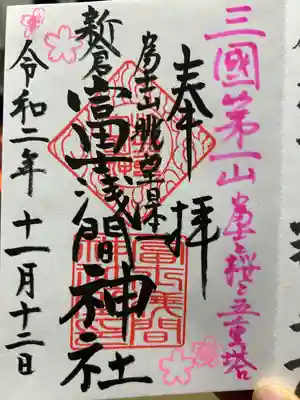 三國第一山 富士と桜と五重塔
奉拝
富士山眺望県
新倉富士浅間神社
令和二年十一月十二日